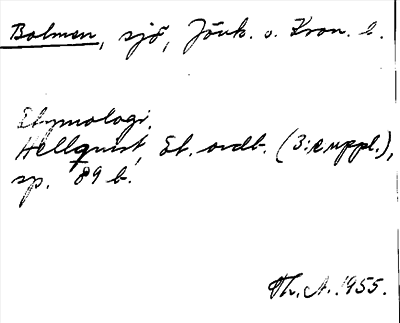 Bolmen, sjö, Jönk. o. Kron. l.
Etymologi.
Hellquist, Et. ordb. (3:e uppl.),
sp. 89 b.
Th. A. 1955.